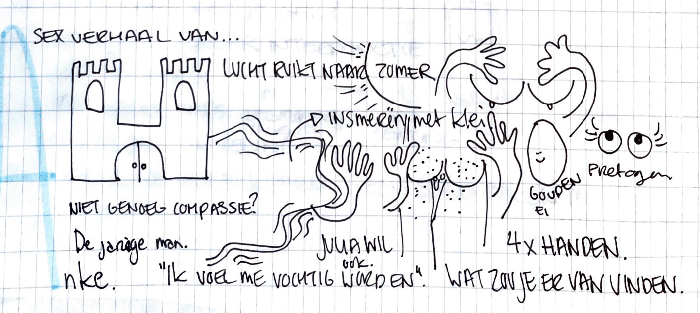 SEX VERHAAL VAN...
LUCHT RUIKT NAAR ZOMER
INSMERING met klei
GOUDEN
EI
Pretogen
NIET GENOEG COMPASSIE?
De jarige man.
JULIA WIL
OOK.
4x HANDEN.
nke.
"IK VOEL ME VOCHTIG WORDEN".
WAT ZOU JE ER VAN VINDEN.